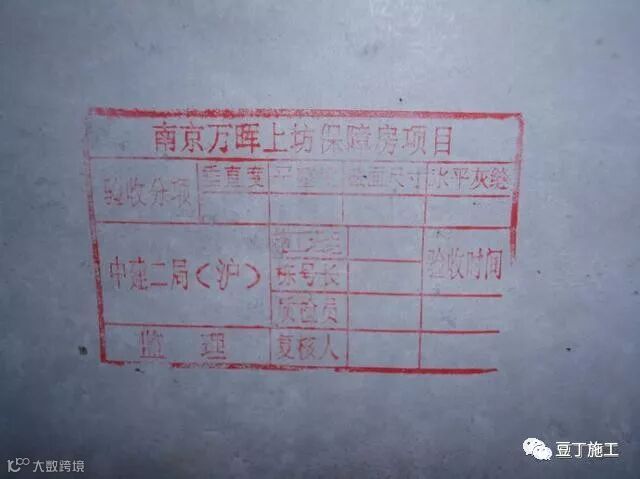 南京万晖上坊保障房项目
验收分项 垂直度 平整度 截面尺寸 水平灰缝
中建二局(沪) 验收时间
栋号长
质检员
监理 复核人
豆丁施工
大数跨境